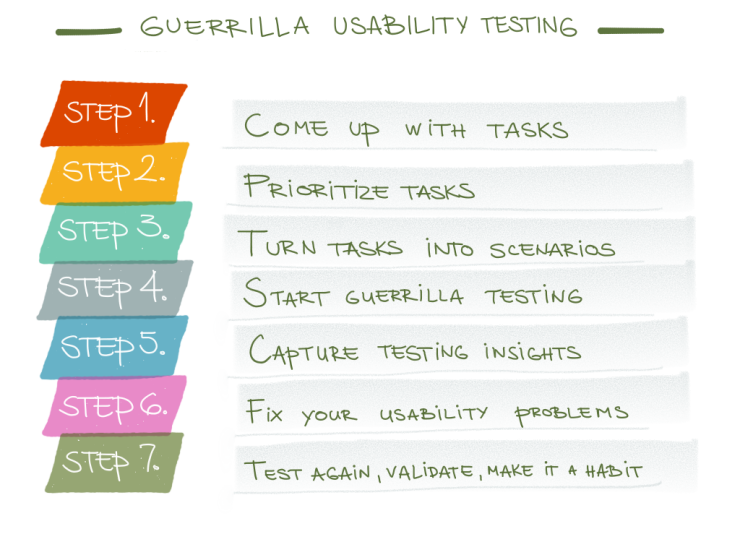 GUERRILLA USABILITY TESTING
STEP 1. COME UP WITH TASKS
STEP 2. PRIORITIZE TASKS
STEP 3. TURN TASKS INTO SCENARIOS
STEP 4. START GUERRILLA TESTING
STEP 5. CAPTURE TESTING INSIGHTS
STEP 6. FIX YOUR USABILITY PROBLEMS
STEP 7. TEST AGAIN, VALIDATE, MAKE IT A HABIT